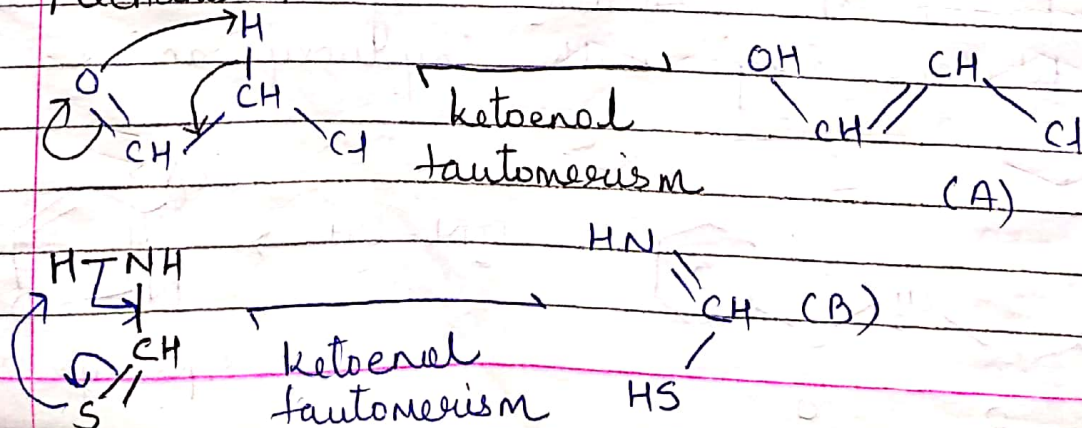 H
O
CH
CH
Cl
ketoenol
tautomerism
OH
CH
CH
Cl
(A)
H-NH
CH
S
ketoenol
tautomerism
HN
CH (B)
HS